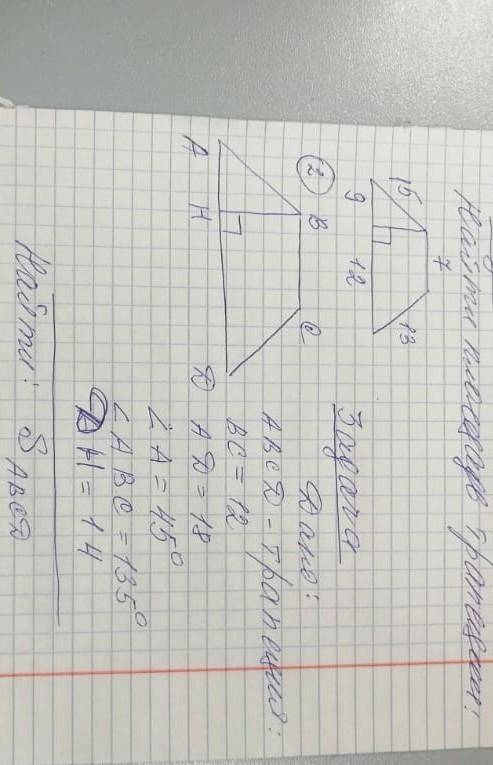 Найти площадь трапеции:
15
7
13
9
12
Задача
2
B
C
A
H
D
Дано:
ABCD - трапеция:
BC = 12
AD = 18
∠A = 45°
∠ABC = 135°
DH = 14
Найти: S ABCD